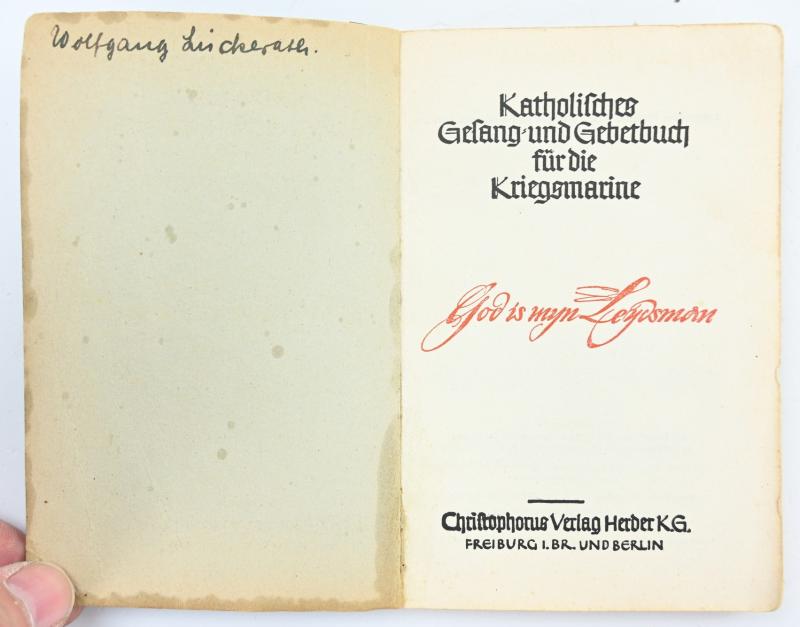 Wolfgang Lückerath.
Katholisches
Gesang- und Gebetbuch
für die
Kriegsmarine
God is myn Leydsman
Christophorus Verlag Herder K.G.
FREIBURG I. BR. UND BERLIN